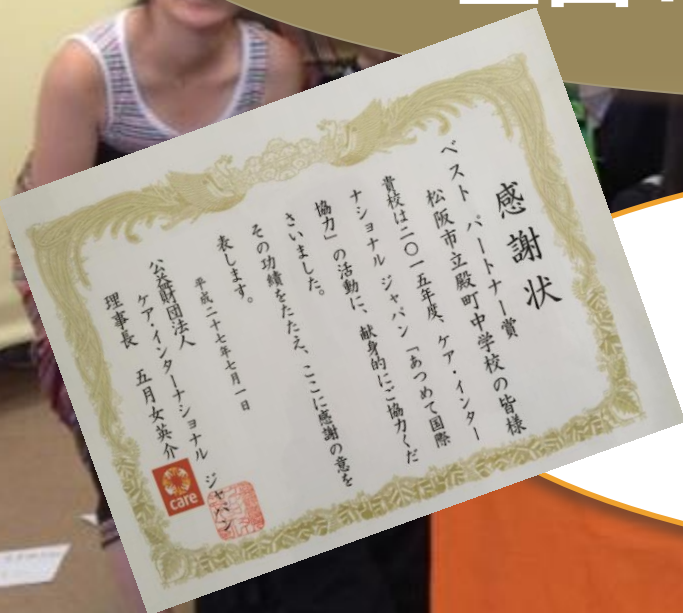 感謝状
ベスト パートナー賞
松阪市立殿町中学校の皆様
貴校は二〇一五年度、ケア・インター
ナショナル ジャパン「あつめて国際
協力」の活動に、献身的にご協力くだ
さいました。
その功績をたたえ、ここに感謝の意を
表します。
平成二十七年七月一日
公益財団法人
ケア・インターナショナル ジャパン
理事長 五月女英介
care